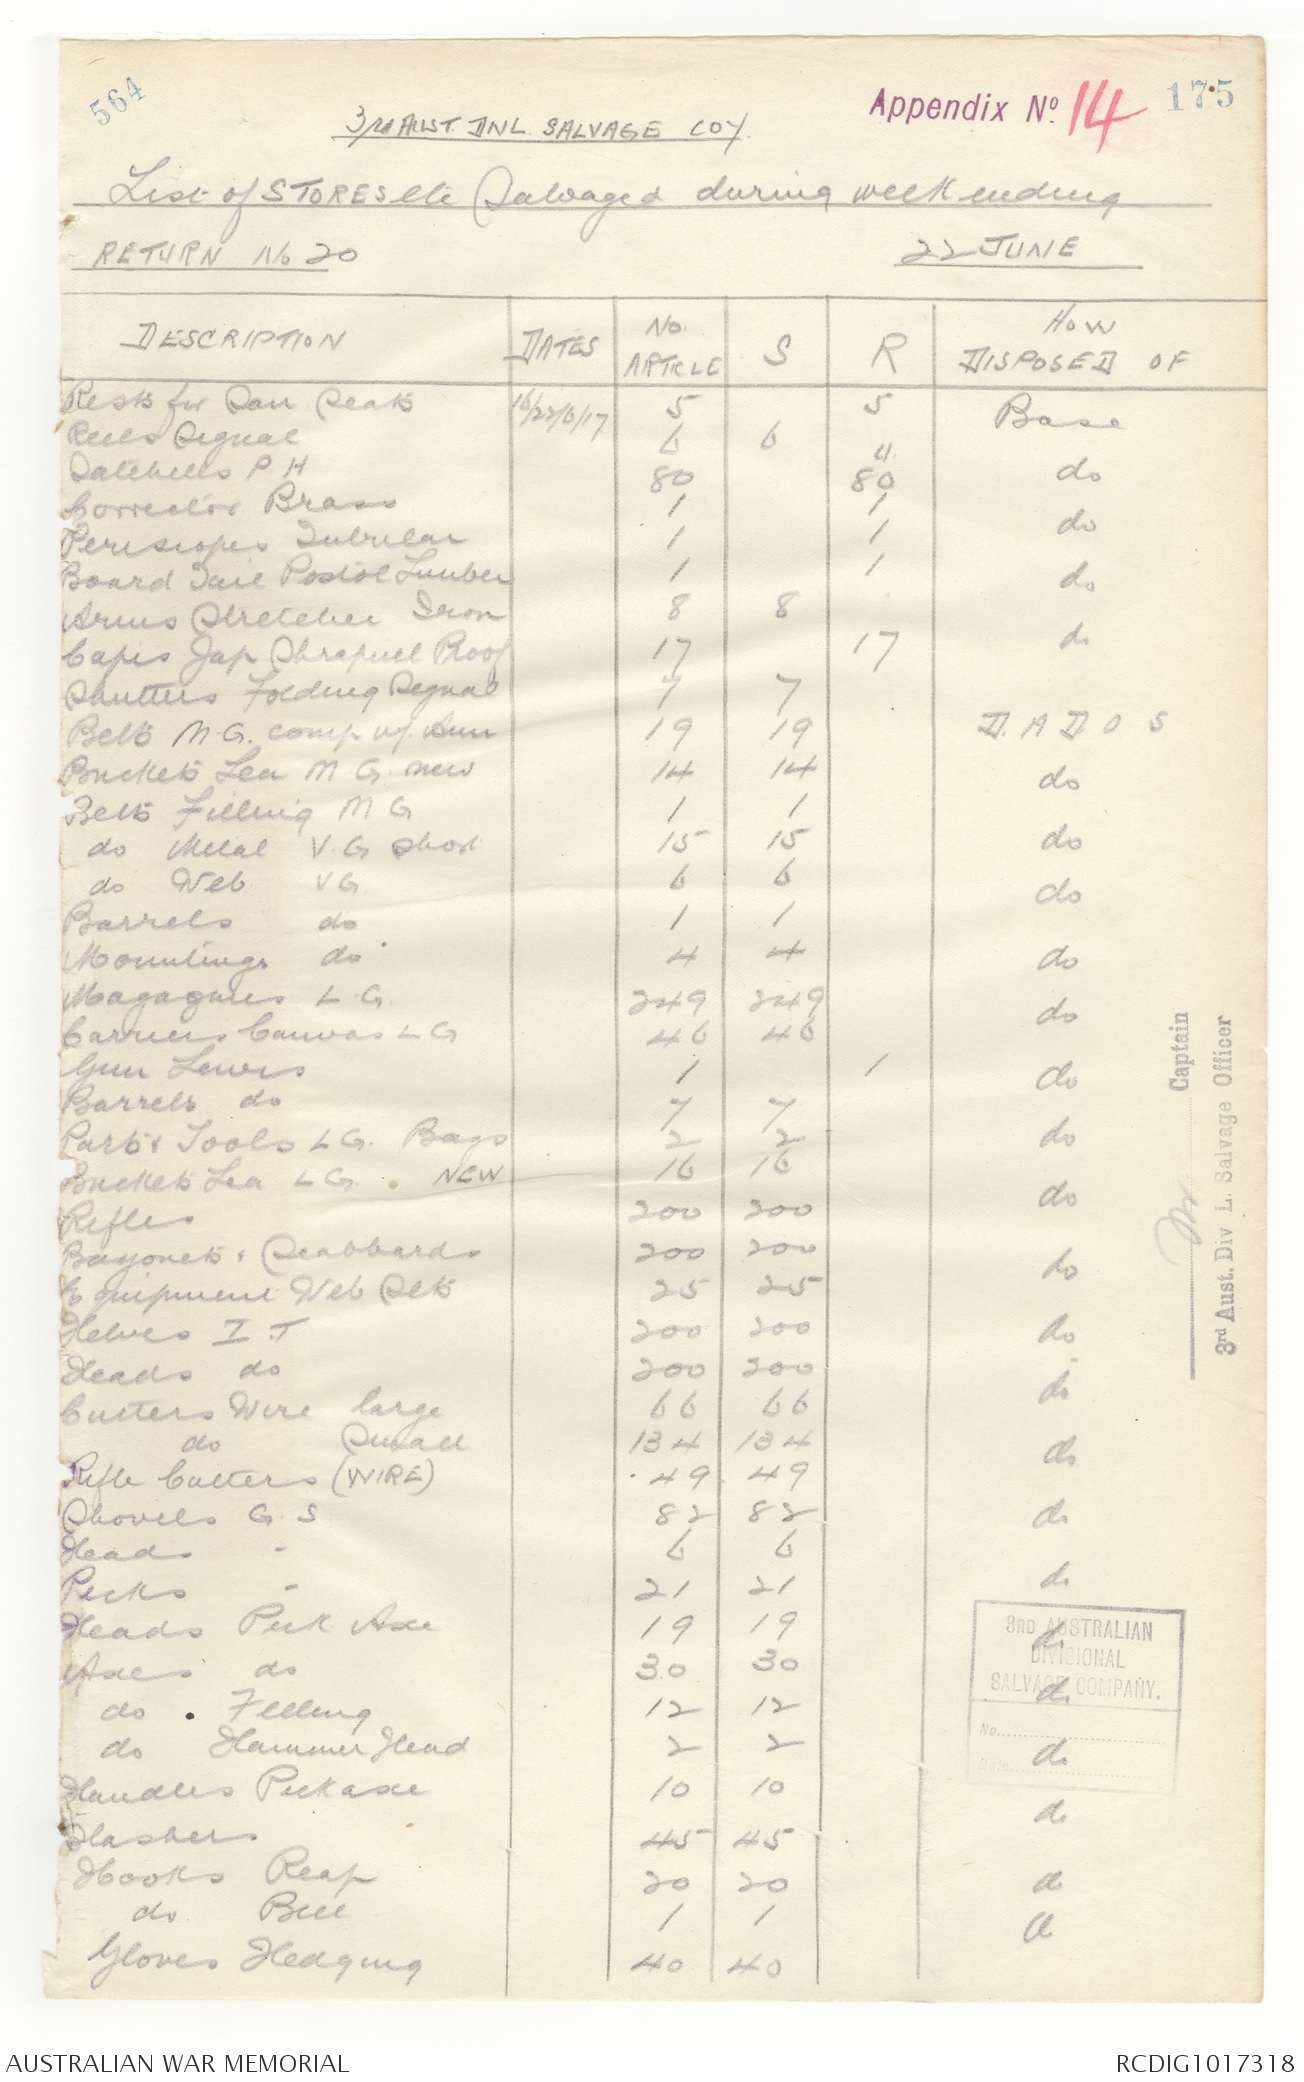 564
Appendix No. 14
175
3rd AUST. DNL. SALVAGE COY.
List of STORES etc Salvaged during week ending
RETURN No 20
22 JUNE
DESCRIPTION DATES No. ARTICLE S R HOW DISPOSED OF
Rests for 16/22/6/17 5 5 Base
Reels Signal 6 6
Satchells P H 80 80 do
Corrector Brass 1 1
Periscopes Tubular 1 1 do
Board Tail 1 1
Arms Stretcher Iron 8 8 do
Capes Jap Shrapnel Proof 17 17 do
Shutters Folding Signal 7 7
Belts M.G. comp 19 19 D.A.D.O.S
Buckets Lea M G new 14 14 do
Belts Filling M G 1 1
do Metal V.G short 15 15 do
do Web VG 6 6 do
Barrels do 1 1
Mountings do 4 4 do
Magagines L.G. 249 249
Carriers Canvas L G 46 46 do
Gun Lewis 1 1 do
Barrels do 7 7
Parts & Tools L G. Bags 2 2 do
Buckets Lea L G. NEW 16 16
Rifles 200 200 do
Bayonets & Scabbards 200 200
Equipment Web Sets 25 25 do
Helves I.T 200 200 do
Heads do 200 200
Cutters Wire large 66 66 do
do Small 134 134
Rifle Cutters (WIRE) 49 49 do
Shovels G S 82 82 do
Heads " 6 6
Picks " 21 21 do
Heads Pick Axe 19 19 do
Axes do 30 30
do Felling 12 12 do
do Hammer Head 2 2 do
Handles Pickaxe 10 10
Slashers 45 45 do
Hooks Reap 20 20 do
do Bill 1 1 do
Gloves Hedging 40 40
Captain
3rd Aust. Div L. Salvage Officer
3RD AUSTRALIAN
DIVISIONAL
SALVAGE COMPANY.
No.
Date
AUSTRALIAN WAR MEMORIAL
RCDIG1017318